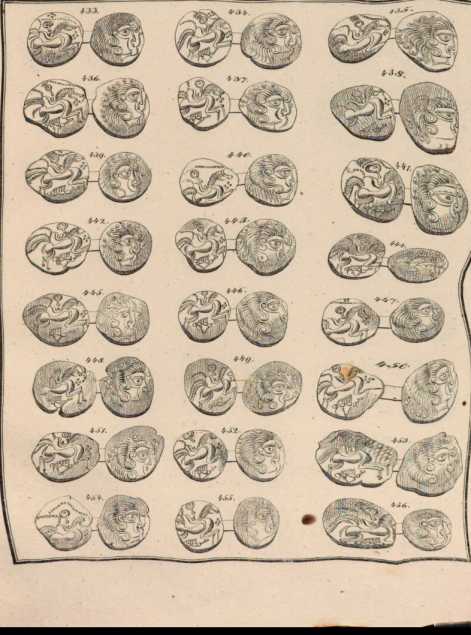 433. 434. 435.
436. 437. 438.
439. 440. 441.
442. 443. 444.
445. 446. 447.
448. 449. 450.
451. 452. 453.
454. 455. 456.